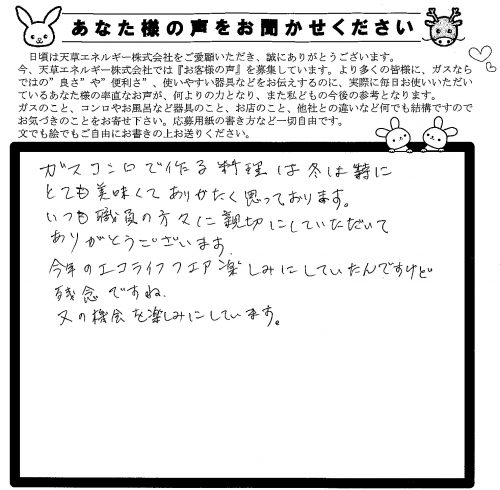 あなた様の声をお聞かせください
日頃は天草エネルギー株式会社をご愛顧いただき、誠にありがとうございます。
今、天草エネルギー株式会社では『お客様の声』を募集しています。より多くの皆様に、ガスなら
ではの”良さ”や”便利さ”、使いやすい器具などをお伝えするのに、実際に毎日お使いいただい
ているあなた様の率直なお声が、何よりの力となり、また私どもの今後の参考となります。
ガスのこと、コンロやお風呂など器具のこと、お店のこと、他社との違いなど何でも結構ですので
お気づきのことをお寄せ下さい。応募用紙の書き方など一切自由です。
文でも絵でもご自由にお書きの上お送りください。
ガスコンロで作る料理は冬は特に
とても美味くてありがたく思っております。
いつも職員の方々に親切にしていただいて
ありがとうございます。
今年のエコライフフエア楽しみにしていたんですけど
残念ですね.
又の機会を楽しみにしています。